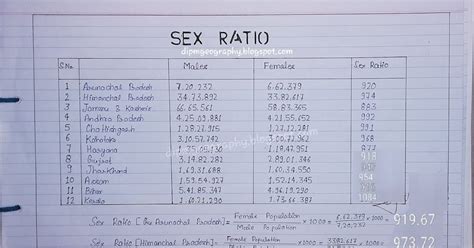 SEX RATIO
dipmgeography.blogspot.com
S.No. Males Females Sex Ratio
1 Arunachal Pradesh 7,20,232 6,62,379 920
2 Himachal Pradesh 34,73,892 33,82,617 974
3 Jammu & Kashmir 66,65,561 58,83,365 883
4 Andhra Pradesh 4,25,09,881 4,21,55,652 992
5 Chattishgarh 1,28,27,915 1,27,12,281 991
6 3,10,57,742 3,00,72,962 968
7 Haryana 1,35,05,130 1,18,47,
8 Gujrat 3,14,82,282 2,89,01,346 918
9 Jharkhand 1,69,31,688 1,60,34,550 947
10 Assam 1,59,54,927 1,52,14,345 954
11 Bihar 5,41,85,347 4,96,19,290
12 Kerala 1,60,21,290 1,73,66,387 1084
Sex Ratio [for Arunachal Pradesh] = Female Population / Male Population × 1000 = 6,62,379 / 7,20,232 × 1000 = 919.67
Sex Ratio [Himachal Pradesh] = Female Population × 1000 = 33,82,617 × 1000 = 973.72